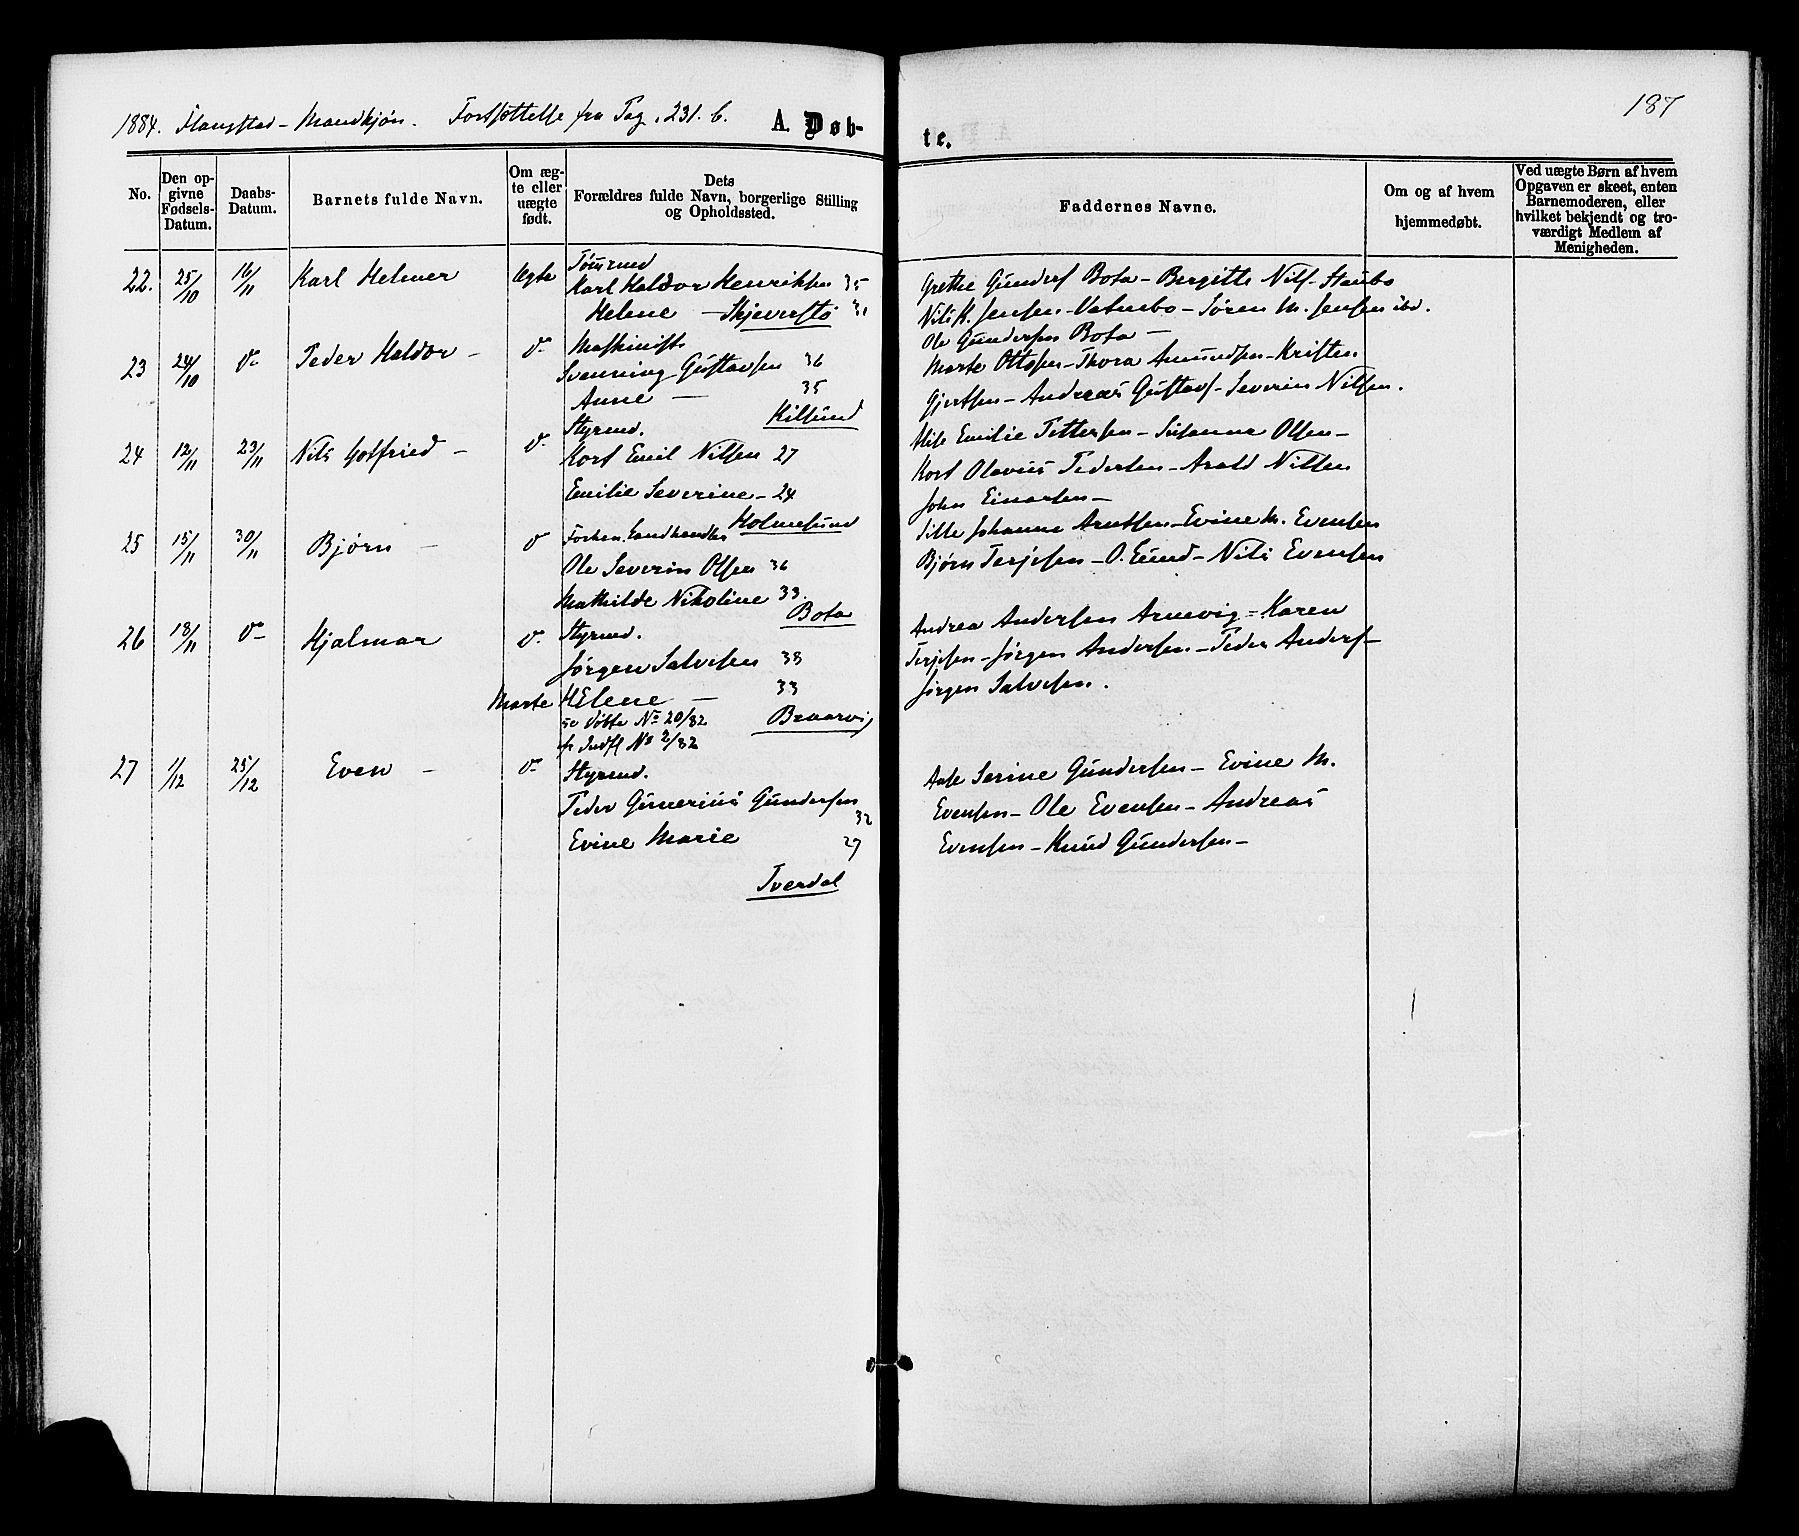 187
1884. Flangstad - Mandkjøn. Fortsættelse fra Pag. 231. b.
A. Døb-
te.
No.
Den op-
givne
Fødsels-
Datum.
Daabs-
Datum.
Barnets fulde Navn.
Om æg-
te eller
uægte
født.
Dets
Forældres fulde Navn, borgerlige Stilling
og Opholdssted.
Faddernes Navne.
Om og af hvem
hjemmedøbt.
Ved uægte Børn af hvem
Opgaven er skeet, enten
Barnemoderen, eller
hvilket bekjendt og tro-
værdigt Medlem af
Menigheden.
22. 25/10 16/11 Karl Helmer Ægte Tømmd
Karl Haldor Henriksen 35
Helene - Skjevestø 31
Grethe Gunders Bota - Bergitte Nils Staubo
Nils K. Jensen - Vatnebo - Søren M. Jensen ibd.
Ole Gundersen Bota -
23 24/10 do Peder Haldor - do Maskinist
Svenning Gustavsen 36
Anne - 35
Kilsund
Marte Ottesen - Thora Amundsen - Kristen
Gjertsen - Andreas Gustavs - Severin Nilsen.
24 12/11 23/11 Nils Gotfried - do Styrmd.
Kort Emil Nilsen 27
Emilie Severine - 24
Holmesund
Emilie Pettersen - Susanna Olsen -
Kort Olavus Pedersen - Arald Nilsen
John Einarsen -
25 15/11 30/11 Bjørn - do Forhen. Landhandler
Ole Severin Olsen 36
Mathilde Nikoline 33.
Bota
Sille Johanne Arntsen - Evine M. Evensen
Bjørn Terjesen - O. Eund - Nils Evensen
26 18/11 do Hjalmar do Styrmd.
Jørgen Salvesen 38
Marte Helene - 33
se døbte No 20/82 Braarvig
fr Indfl No 2/82
Andrea Andersen Arnevig - Karen
Terjesen - Jørgen Andersen - Peder Anders -
Jørgen Salvesen.
27 1/12 25/12 Even - do Styrmd.
Peder Gumerius Gundersen
32
Evine Marie 27
Tverdal
Aase Serine Gundersen - Evine M.
Evensen - Ole Evensen - Andreas
Evensen - Knud Gundersen -